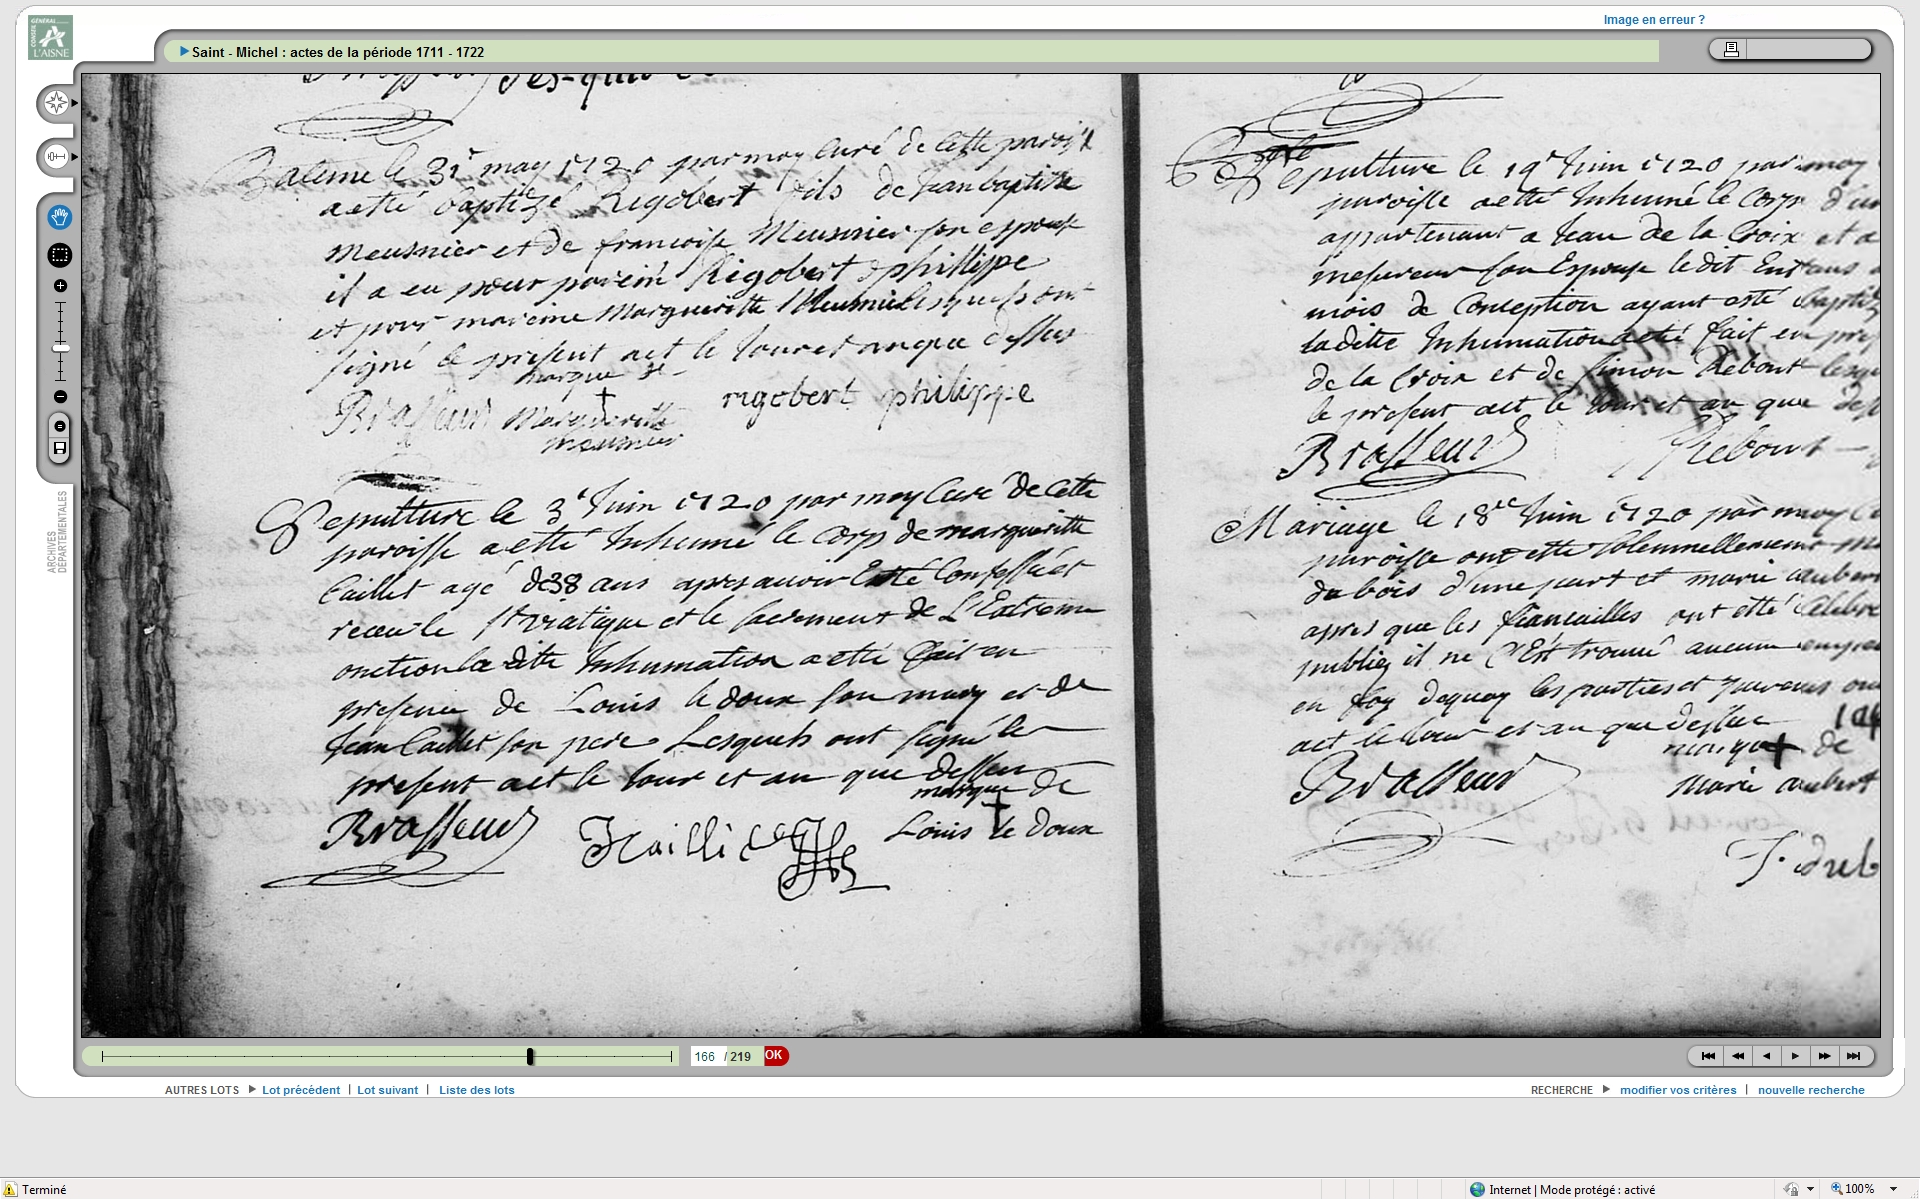 Image en erreur ?
CONSEIL GÉNÉRAL
L'AISNE
Saint - Michel : actes de la période 1711 - 1722
Bateme le 31e may 1720 par moy curé de cette paroisse
a etté baptizé Rigobert fils de Jean baptiste
Meusnier et de francoise Meusnier son espouse
il a eu pour parein Rigobert philippe
et pour mareine Margueritte Meusnier lesquels ont
signé le present act le Jour et an que dessus
marque de
Brasseur Margueritte rigobert philippe
meusnier
Sepulture le 3e Juin 1720 par moy Curé de Cette
paroisse a etté Inhumé le Corps de margueritte
Caillet agé de 38 ans apres avoir Esté Confessée et
receu le st viatique et le sacrement de L'Extreme
onction la ditte Inhumation a etté fait en
presence de Louis le doux son mary et de
Jean Caillet son pere Lesquels ont signé le
present act le Jour et an que dessus
marque de
Brasseur Louis le doux
Sepulture le 19e Juin 1720 par moy
paroisse a etté Inhumé le Corps d'un
appartenant a Jean de la Croix et a
mesureur son Espouse le dit Enfans
mois de Conception ayant esté baptiz
la ditte Inhumation a eté fait en pres
de la Croix et de Simon Rebout lesqu
le present act le Jour et an que dess
Brasseur Rebout
Mariage le 18e Juin 1720 par moy Cu
paroisse ont etté solemnellement
du bois d'une part et marie aubert
apres que les fiancailles ont etté Celebré
publiez il ne s'Est trouvé aucun empe
en foy dequoy les parties et parens ont
act le Jour et an que dessus 104
marque de
Brasseur Marie aubert
J. dub
ARCHIVES
DÉPARTEMENTALES
166 / 219 OK
AUTRES LOTS Lot précédent | Lot suivant | Liste des lots
RECHERCHE modifier vos critères | nouvelle recherche
Terminé
Internet | Mode protégé : activé
100%